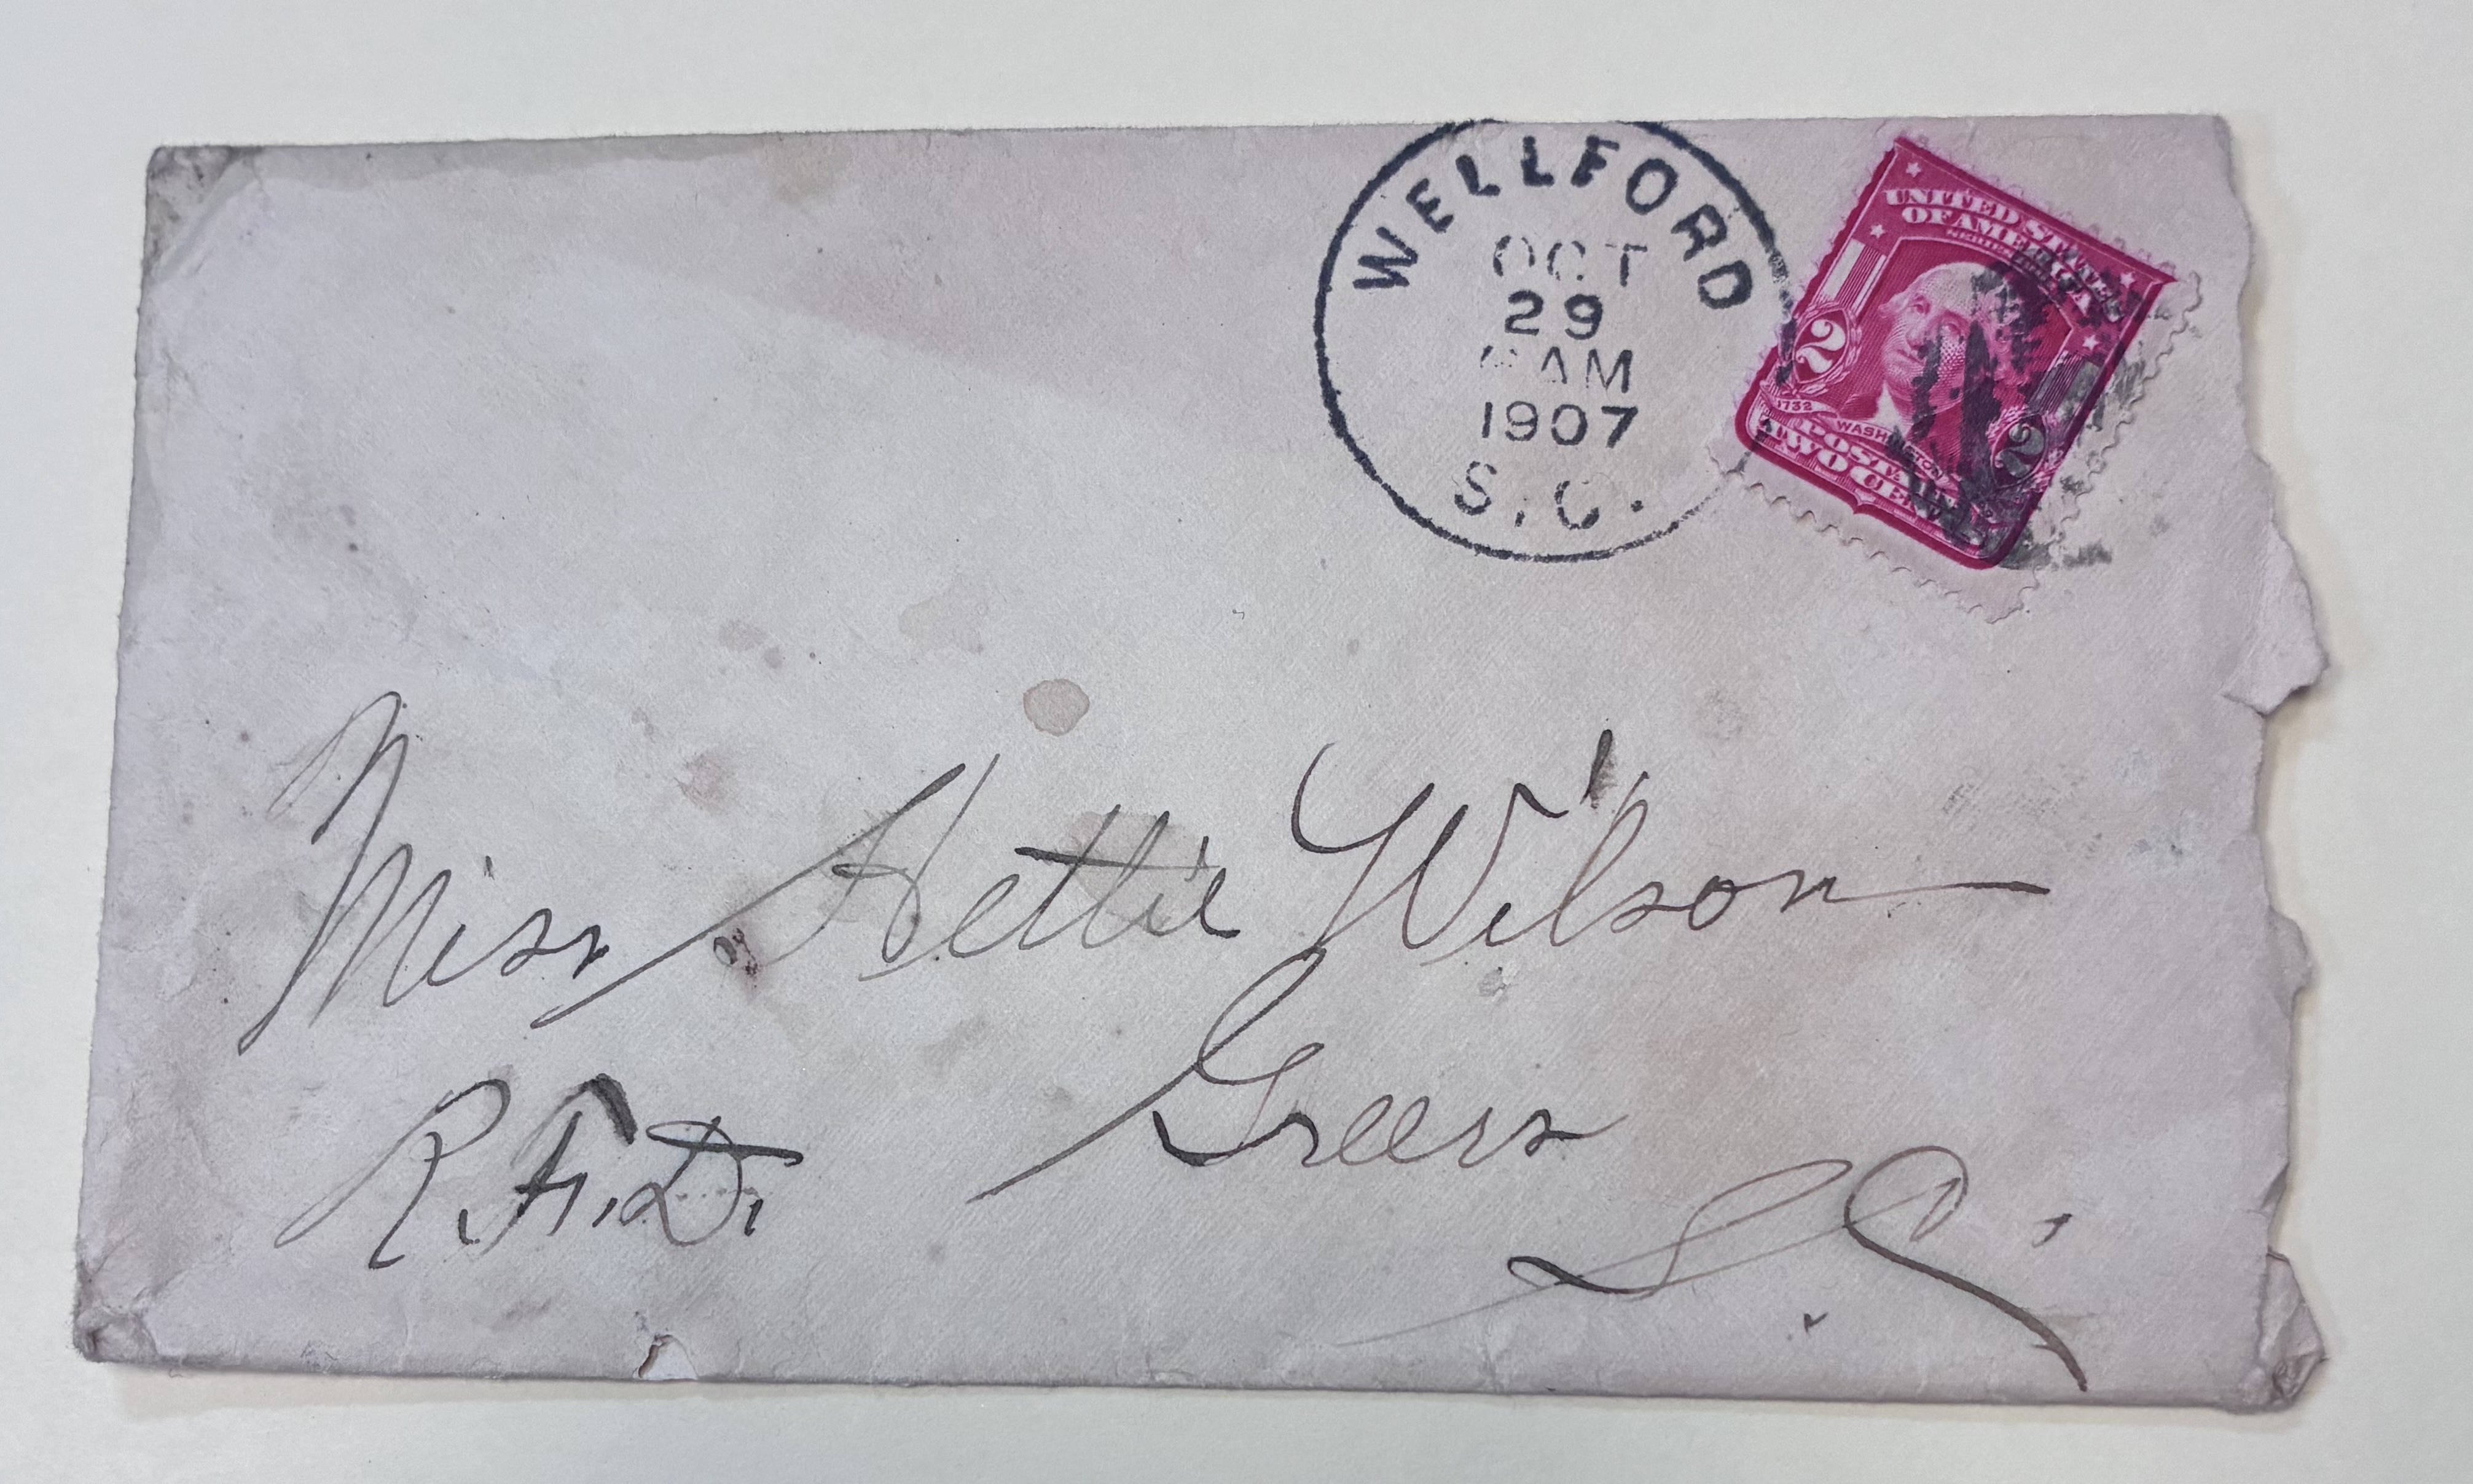 WELLFORD
OCT
29
AM
1907
S.C.
UNITED STATES
OF AMERICA
2 2
1732
WASHINGTON
POSTAGE
TWO CENTS
Miss Hettie Wilson
Greers
R.F.D.
S.C.